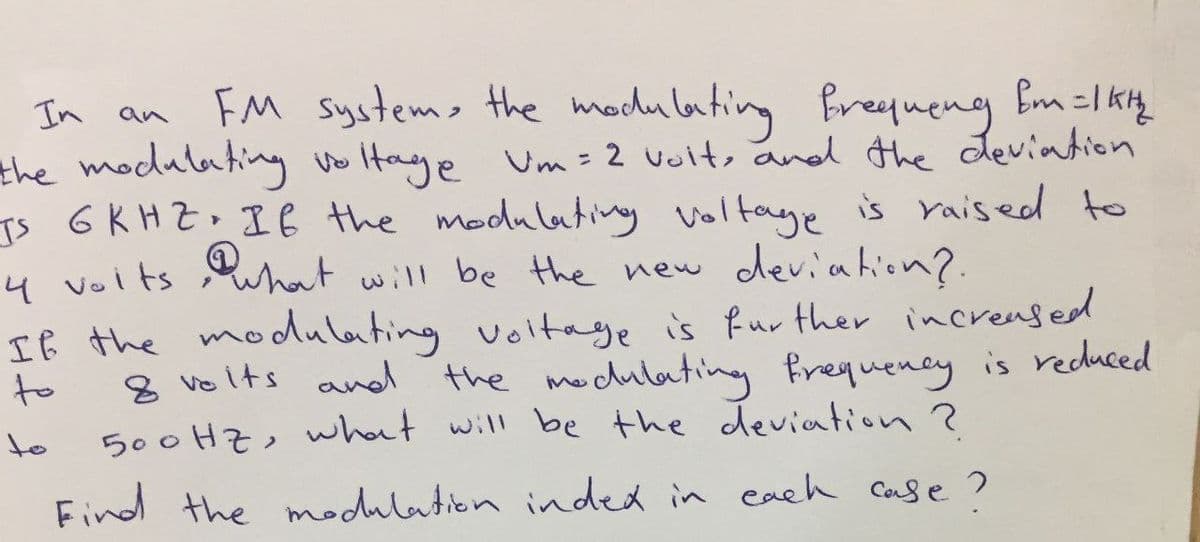 In an FM system, the modulating frequency fm = 1 KHz
the modulating voltage Vm = 2 volt, and the deviation
IS 6 KHZ. If the modulating voltage is raised to
4 volts, ① what will be the new deviation?.
If the modulating voltage is further increased
to 8 volts and the modulating frequency is reduced
to 500 HZ, what will be the deviation?
Find the modulation index in each case?